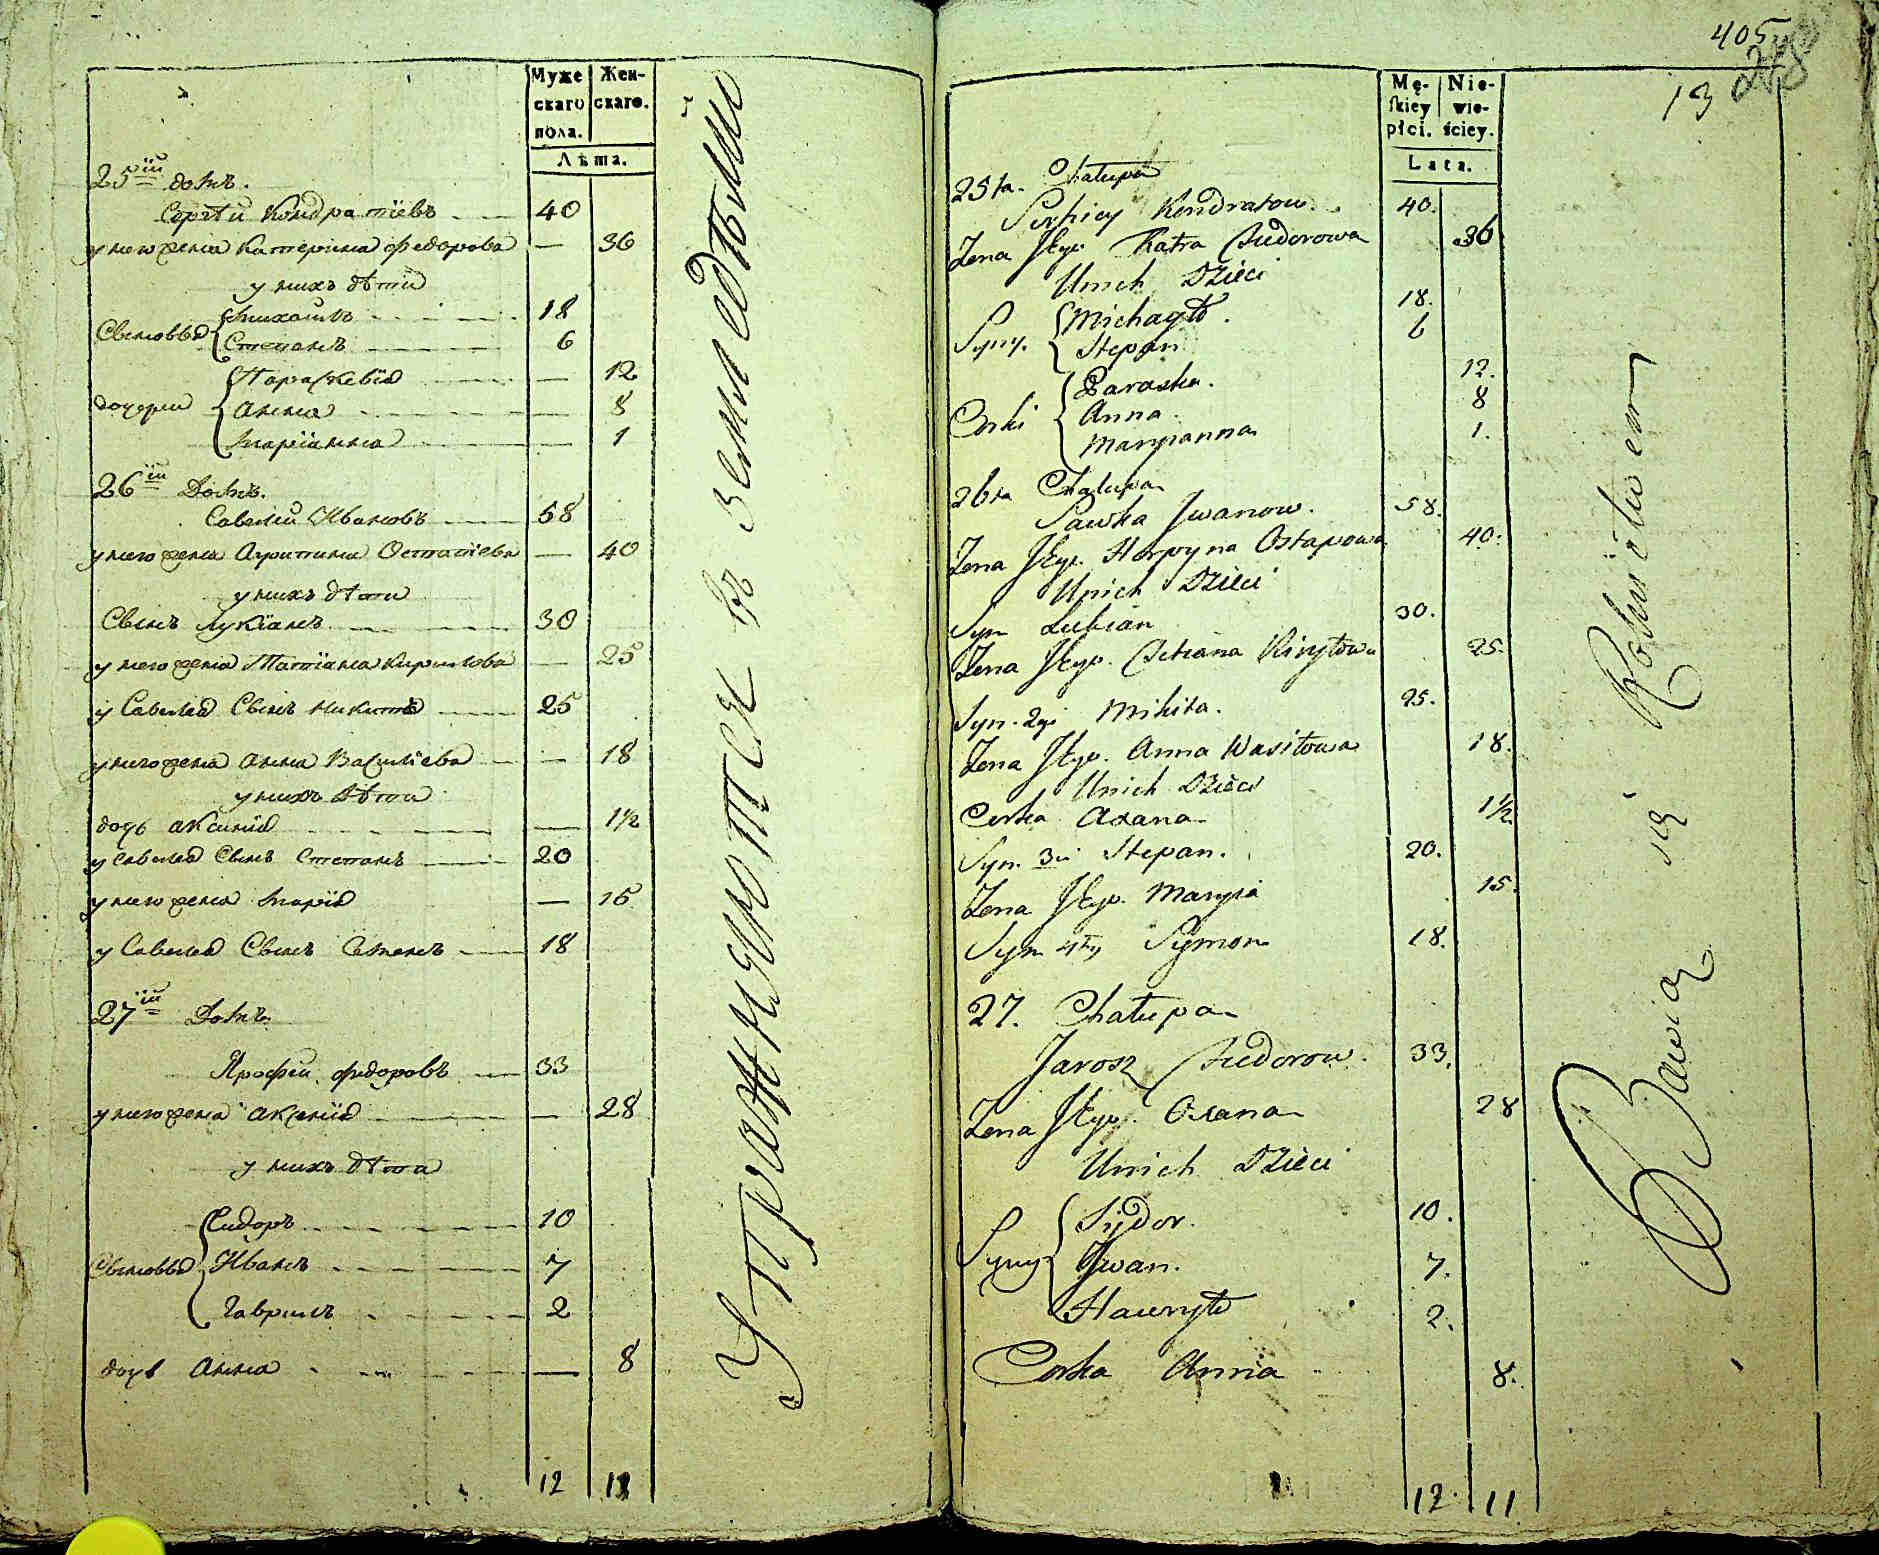 Муже
скаго
пола.
Жен-
скаго.
Лѣта.
25ій домъ.
Сергѣй Кондратіевъ 40
у него жена Катерина Федорова — 36
у нихъ дѣти
Сыновья Михаилъ 18
Степанъ 6
дочери Параскевія — 12
Анна — 8
Маріанна — 1
26ій Домъ.
Савелій Ивановъ 58
у него жена Агрипина Остапіева — 40
у нихъ дѣти
Сынъ Лукіанъ 30
у него жена Татіана Кирилова — 25
у Савелія Сынъ Никита 25
у него жена Анна Василіева — 18
у нихъ дѣти
дочь Аксинія — 1½
у Савелія Сынъ Степанъ 20
у него жена Марія — 15
у Савелія Сынъ Семенъ 18
27ій Домъ
Ярофей Федоровъ 33
у него жена Аксинія — 28
у нихъ дѣти
Сыновья Сидоръ 10
Иванъ 7
Гаврилъ 2
дочь Анна — 8
12 11
Упражняются въ земледѣліи
405
13
Mę-
skiey
płci.
Nie-
wie-
ściey.
Lata.
25ta Chałupa
Serhiey Kondratow. 40.
Żena Jego Katra Fiedorowa 36
U nich Dzieci
Syny. Michayło. 18.
Stepan 6
Corki Paraska. 12.
Anna. 8
Maryanna 1.
26ta Chałupa
Sawka Jwanow. 58.
Żena Jego. Horpyna Ostapowa 40.
U nich Dzieci
Syn Lukian 30.
Żena Jego. Tetiana Kiryłowa 25.
Syn. 2gi Mikita. 25.
Żena Jego. Anna Wasilowa 18.
U nich Dzieci
Corka Oxana 1½
Syn. 3ci Stepan. 20.
Żena Jego. Marya 15.
Syn 4ty Symon 18.
27. Chałupa
Jarosz Fiedorow. 33.
Żena Jego. Oxana 28
U nich Dzieci
Syny Sydor. 10.
Jwan. 7.
Hawryło 2.
Corka Anna 8.
12. 11
Bawią się Rolnictwem